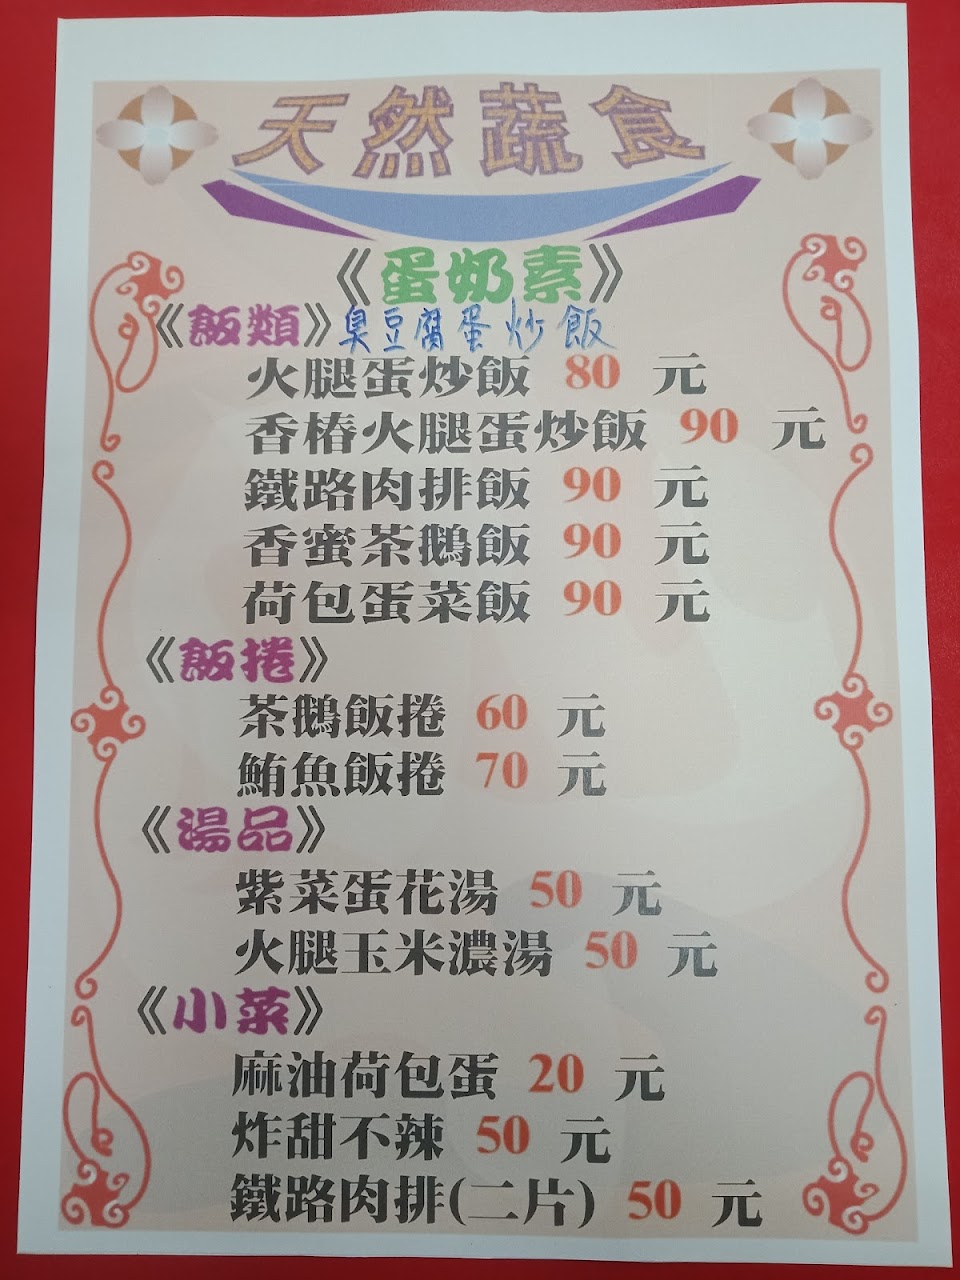 天然蔬食
《蛋奶素》
《飯類》臭豆腐蛋炒飯
火腿蛋炒飯 80 元
香椿火腿蛋炒飯 90 元
鐵路肉排飯 90 元
香蜜茶鵝飯 90 元
荷包蛋菜飯 90 元
《飯捲》
茶鵝飯捲 60 元
鮪魚飯捲 70 元
《湯品》
紫菜蛋花湯 50 元
火腿玉米濃湯 50 元
《小菜》
麻油荷包蛋 20 元
炸甜不辣 50 元
鐵路肉排(二片) 50 元